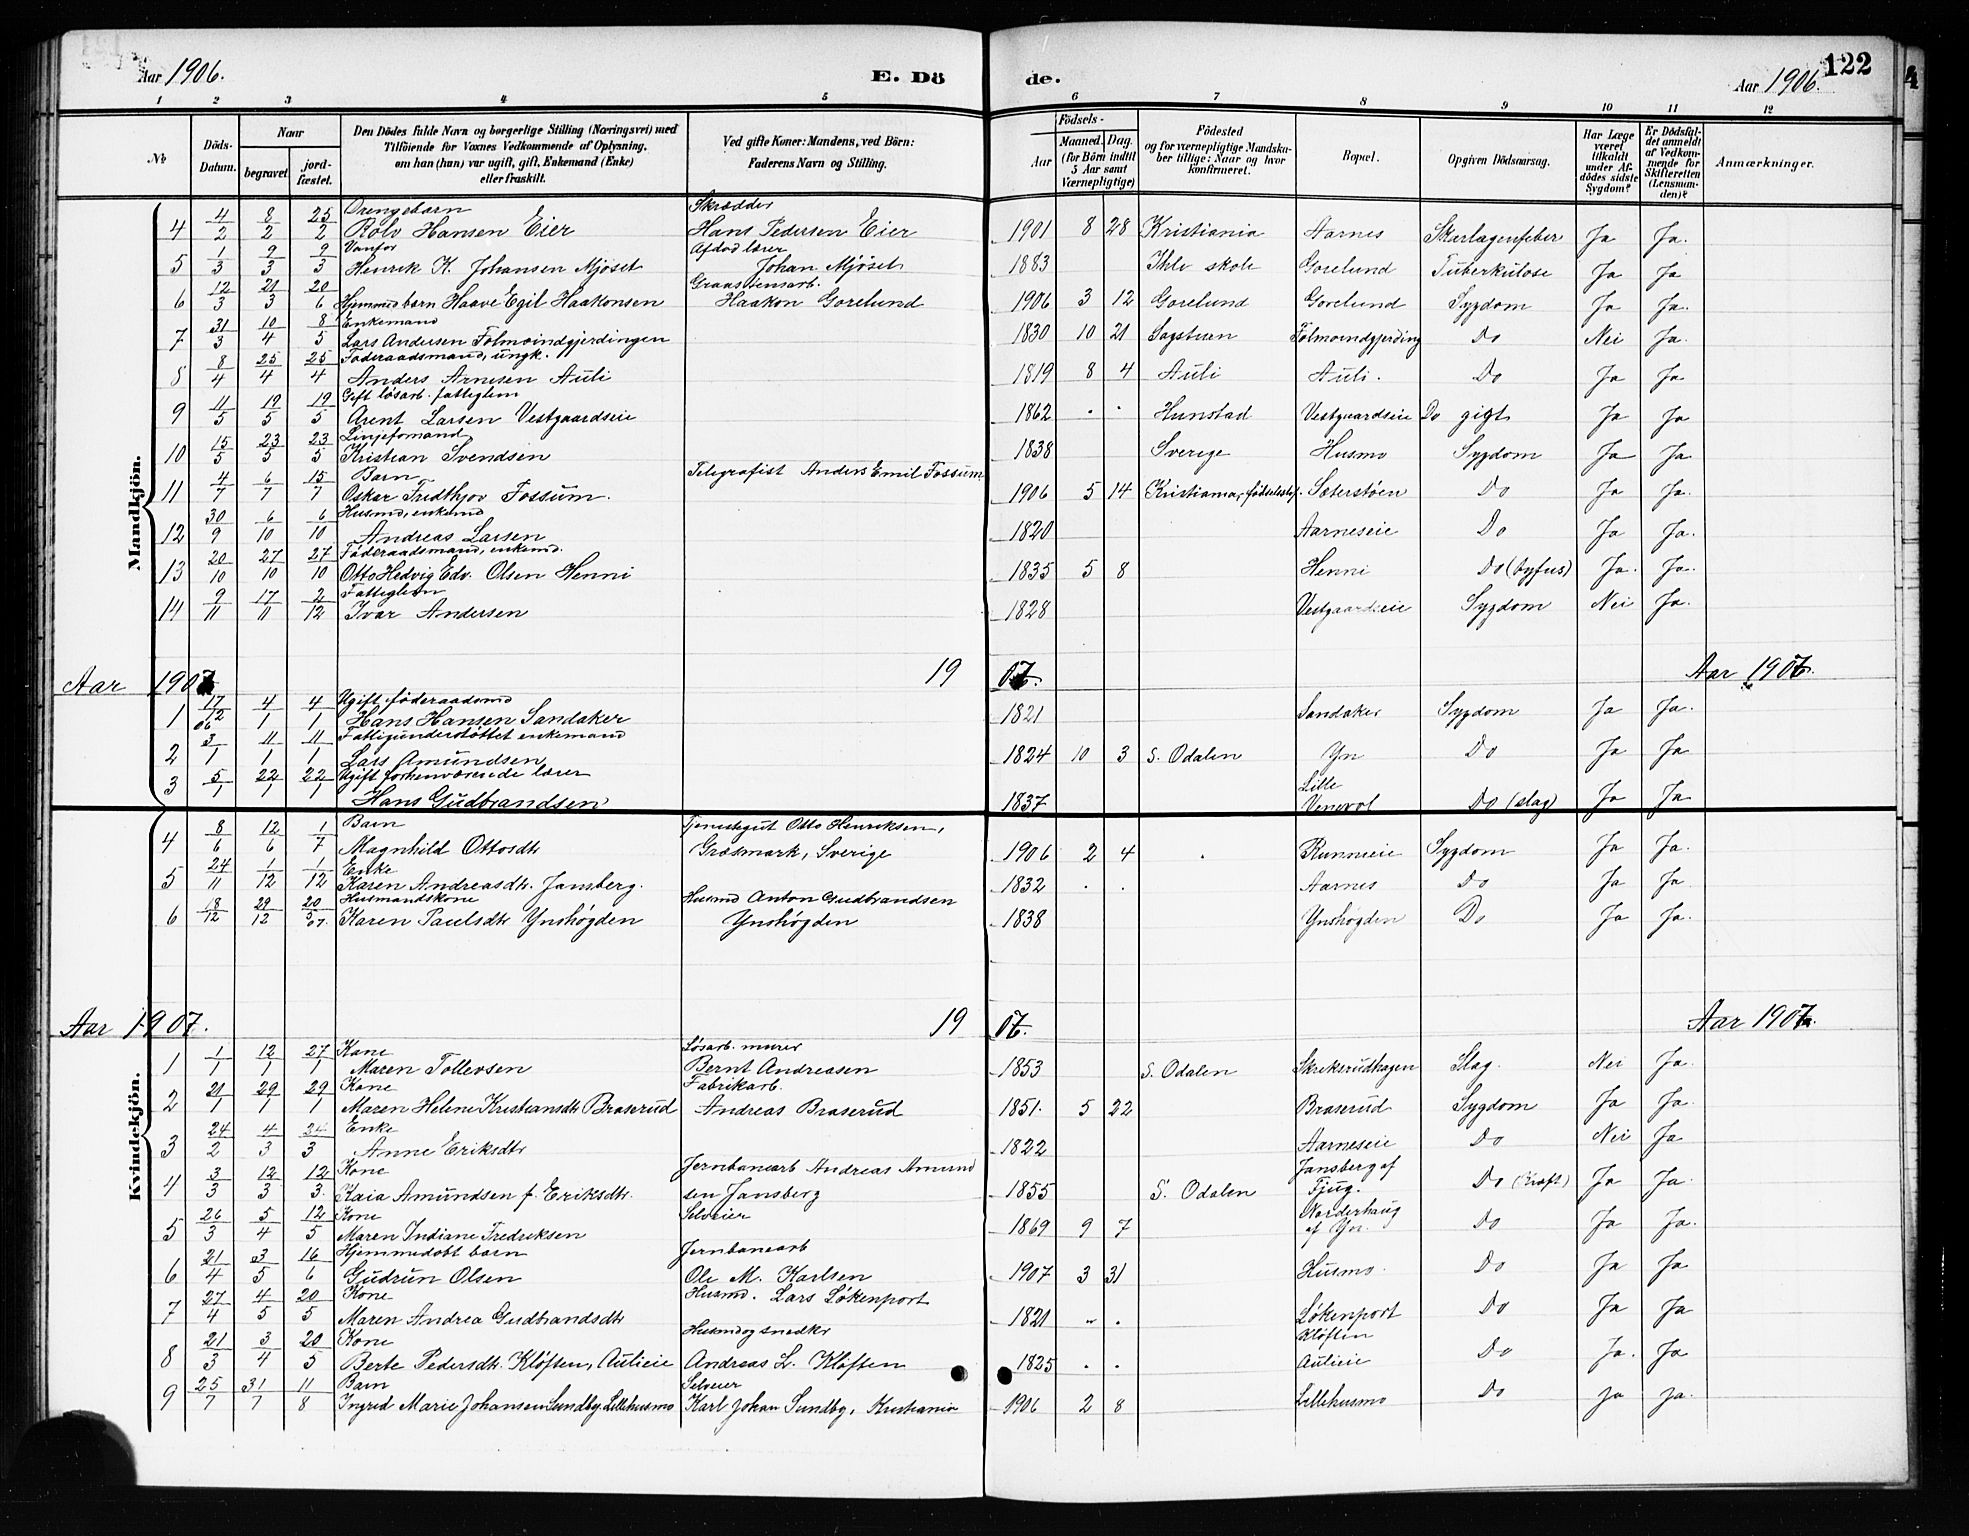 Aar 1906. E. Dö de. Aar 1906. 122
1 2 3 4 5 6 7 8 9 10 11 12
№ Döds-Datum. Naar begravet. jord-fæstet. Den Dödes fulde Navn og borgerlige Stilling (Næringsvei) med Tilföiende for Voxnes Vedkommende af Oplysning, om han (hun) var ugift, gift, Enkemand (Enke) eller fraskilt. Ved gifte Koner: Mandens, ved Börn: Faderens Navn og Stilling. Födsels- Aar Maaned. Dag. (for Börn indtil 5 Aar samt Værnepligtige) Födested og for værnepligtige Mandskaber tillige: Naar og hvor konfirmeret. Bopæl. Opgiven Dödsaarsag. Har Læge været tilkaldt under Afdödes sidste Sygdom? Er Dödsfaldet anmeldt af Vedkommende for Skifteretten (Lensmanden)? Anmærkninger.
Mandkjön.
4 4/2 8/2 25/2 Drengebarn Rolv Hansen Eier Skrædder Hans Pedersen Eier 1901 8 28 Kristiania Aarnes Skarlagensfeber Ja Ja.
5 1/3 9/3 9/3 Vanfør Henrik K. Johansen Mjøset Afdød lærer Johan Mjøset 1883 Ihle skole Gorelund Tuberkulose Ja Ja
6 12/3 21/3 20/6 Hjemmed barn Haave Egil Haakonsen Graastensarb. Haakon Gorelund 1906 3 12 Gorelund Gorelund Sygdom Ja Ja.
7 31/3 10/4 8/5 Enkemand Lars Andersen Folmoindgjerdingen 1830 10 21 Sagstuen Folmoindgjerding Do Nei Ja.
8 8/4 25/4 25/4 Føderaadsmand, ungk. Anders Arnesen Auli 1819 8 4 Auli Auli. Do Ja Ja
9 11/5 19/5 19/5 Gift løsarb. fattiglem Arent Larsen Vestgaardseie 1862 Hunstad Vestgaardseie Do gigt Ja Ja
10 15/5 23/5 23/5 Linjeformand Kristian Svendsen 1838 Sverige Husmo Sygdom Ja Ja
11 4/7 6/7 15/7 Barn Oskar Fredthjov Fossum. Telegrafist Anders Emil Fossum 1906 5 14 Kristiania, fødselsst. Sæterstøen Do Ja Ja.
12 30/9 6/10 6/10 Husmd, enkemd Andreas Larsen 1820 Aarneseie Do Ja Ja.
13 20/10 27/10 27/10 Føderaadsmand, enkemd. Otto Hedvig Edv. Olsen Henni 1835 5 8 Henni Do (tyfus) Ja. Ja.
14 9/11 17/11 2/12 Fattiglem Ivar Andersen 1828 Vestgaardseie Sygdom Nei Ja.
Aar 1907 19 07. Aar 1907.
1 17/12 06 4/1 4/1 Ugift føderaadsmd Hans Hansen Sandaker 1821 Sandaker Sygdom Ja Ja.
2 3/1 11/1 11/1 Fattigunderstøttet enkemand Lars Amundsen 1824 10 3 S. Odalen Yn Do Ja Ja.
3 5/1 22/1 22/1 Ugift forhenværende lærer Hans Gudbrandsen 1837 Lille Venevol Do (slag) Ja Ja
Kvindekjön.
4 8/6 12/6 1/7 Barn Magnhild Ottosdtr Tjenestegut Otto Henriksen, Græsmark, Sverige 1906 2 4 Runnieie Sygdom Ja Ja.
5 24/11 1/12 1/12 Enke Karen Andreasdtr. Jansberg. 1832 Aarnes Do Ja Ja
6 18/12 29/12 20/5 07. Husmandskone Karen Paulsdtr Ynshøgden Husmd Anton Gudbrandsen Ynshøgden 1838 Ynshøgden Do Ja Ja.
Aar 1907. 19 07. Aar 1907.
1 1/1 12/1 27/1 Kone Maren Tollevsen Løsarb. murer Bernt Andreasen 1853 S. Odalen Skrikerudhagen Slag. Nei Ja.
2 21/1 29/1 29/1 Kone Maren Helene Kristiansdtr Braserud Fabrikarb. Andreas Braserud 1851. 5 22 Braserud Sygdom Ja Ja.
3 24/2 4/3 24/3 Enke Anne Eriksdtr 1822 Aarneseie Do Nei Ja
4 3/3 12/3 12/3. Kone Kaia Amundsen f. Eriksdtr. Jernbanearb Andreas Amundsen Jansberg 1855 S. Odalen Jansberg af Fjug. Do (kræft) Ja Ja.
5 26/3 5/4 12/5 Kone Maren Indiane Fredriksen Selveier 1869 9 7 Norderhaug af Yn. Do Ja Ja.
6 21/4 3/5 16/6 Hjemmedøbt barn Gudrun Olsen Jernbanearb Ole M. Karlsen 1907 3 31 Husmo. Do Ja Ja.
7 27/4 4/5 20/5 Kone Maren Andrea Gudbrandsdtr Husmd. Lars Løkenport 1821 Løkenport Do Ja Ja
8 21/3 3/4 20/5 Kone Berte Pedersdtr. Kløften, Aulieie Husmd og snedkr Andreas L. Kløften 1825 Kløften Aulieie Do Ja. Ja
9 25/7 31/7 11/8 Barn Ingrid Marie Johansen Sundby, Lillehusmo Selveier Karl Johan Sundby, Kristiania 1906 2 8 Lillehusmo Do Ja Ja.